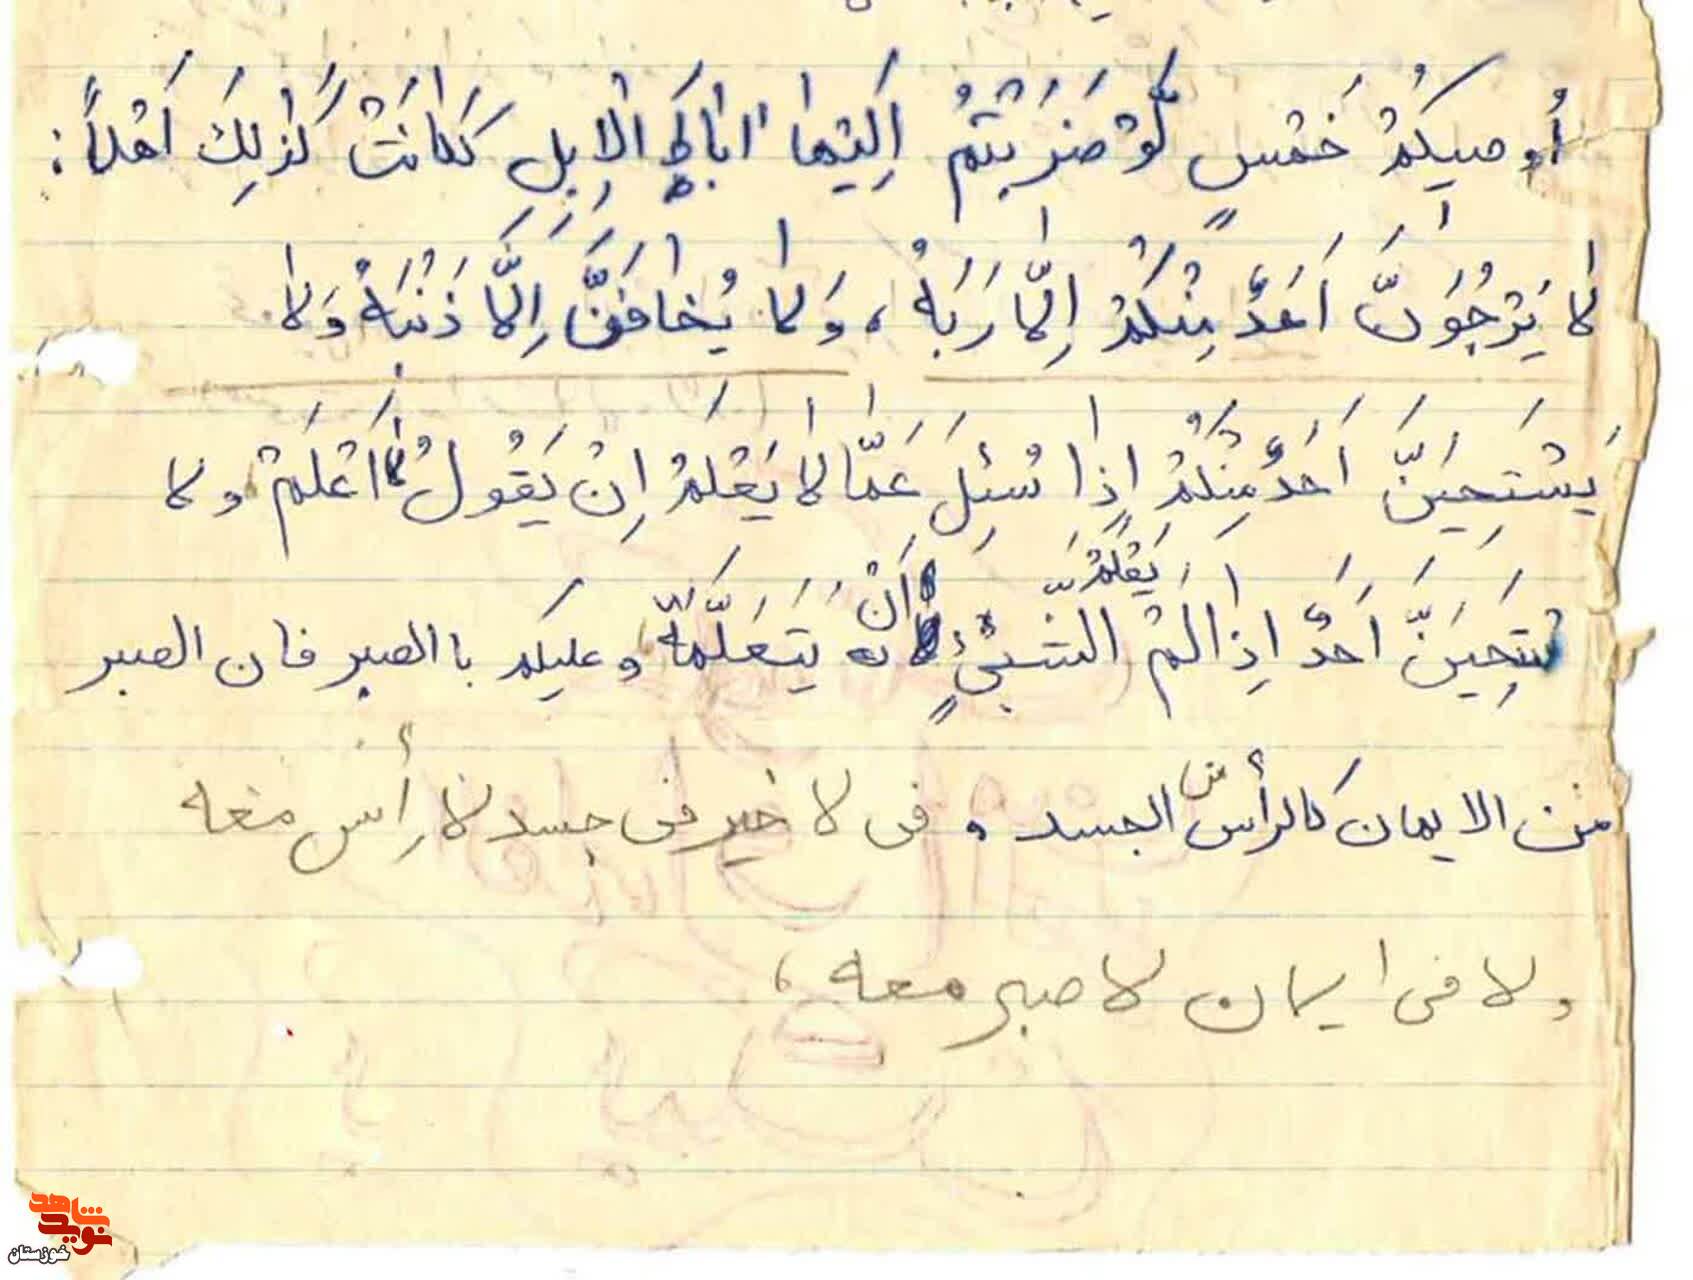 أُوصيكُمْ خَمْسٍ لَوْ ضَرَبْتُمْ اِلَيْها اباطَ الْاِبِلِ لَكانَتْ لِذٰلِكَ اَهْلاً:
لا يَرْجُوَنَّ اَحَدٌ مِنْكُمْ اِلّا رَبَهُ، وَلا يُخافَنَّ اِلَّا ذَنْبَهُ وَلا
يَسْتَحِيَنَّ اَحَدٌ مِنْكُمْ اِذا سُئِلَ عَمّا لا يَعْلَمُ اِنْ يَقُولُ لا اَعْلَمْ ولا
يَسْتَحِيَنَّ اَحَدٌ اِذا لَمْ يَعْلَمُ الشَّيْءٍ اَنْ يَتَعَلَّمَهُ وعليكم با الصبر فان الصبر
من الایمان کالرأس من الجسد، فی لا خیر فی جسد لا رأس معه
ولا فی ایمان لا صبر معه،
شاهد
نوید
خوزستان